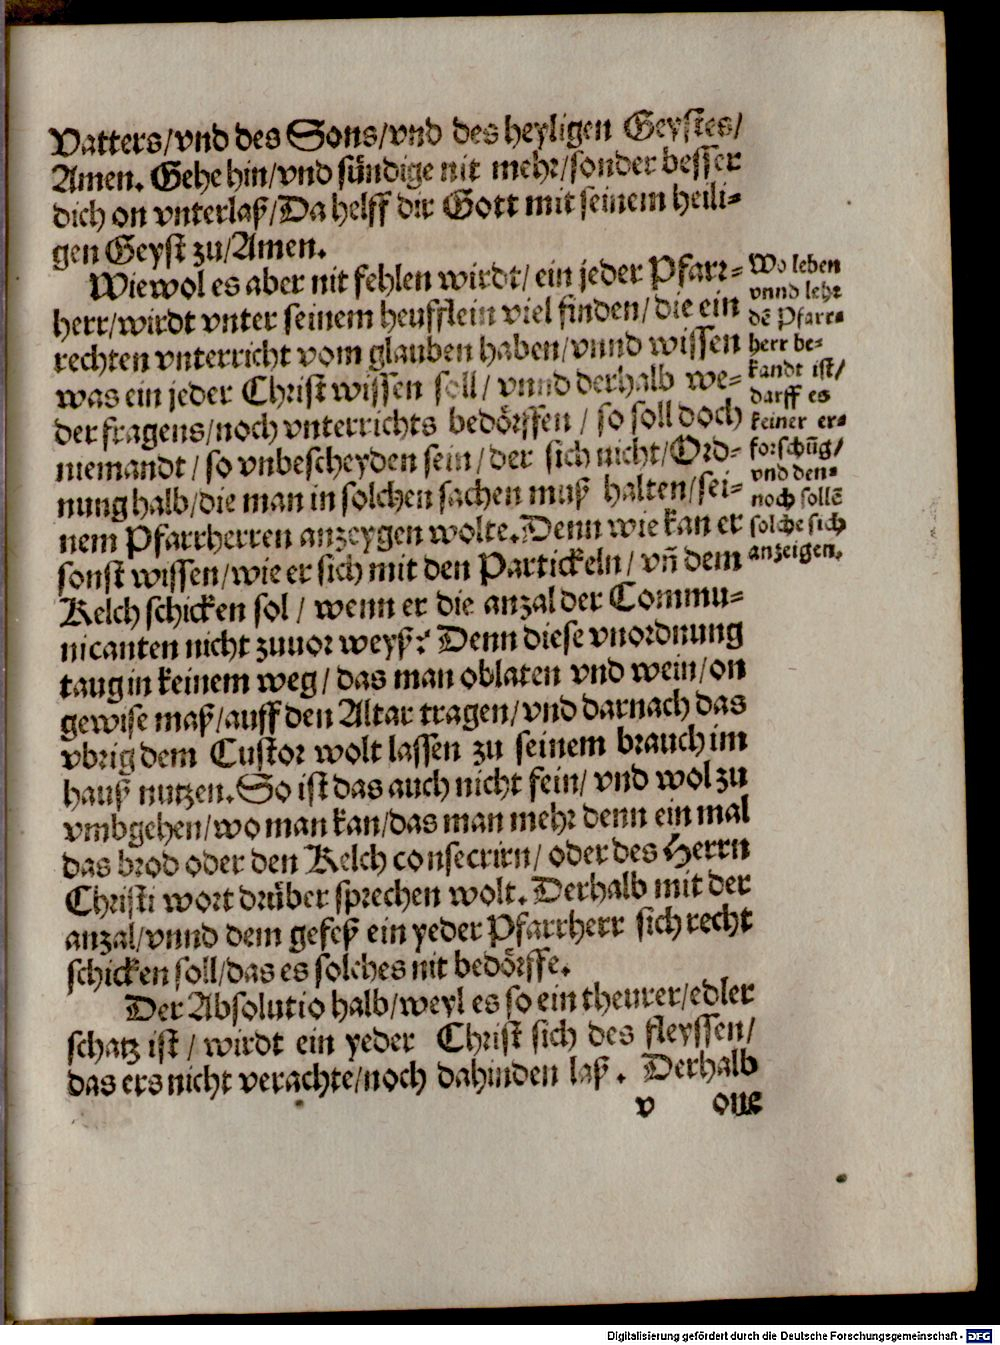 Vatters/vnd des Sons/vnd des heyligen Geystes/
Amen. Gehe hin/vnd sündige nit mehr/sonder besser
dich on vnterlaß/Da helff dir Gott mit seinem heili-
gen Geyst zu/Amen.
Wiewol es aber nit fehlen wirdt/ein jeder Pfarr-
herr/wirdt vnter seinem heufflein viel finden/die ein
rechten vnterricht vom glauben haben/vnnd wissen
was ein jeder Christ wissen soll/vnnd derhalb we-
der fragens/noch vnterrichts bedörffen/so soll doch
niemandt/so vnbescheyden sein/der sich nicht/Ord-
nung halb/die man in solchen sachen muß halten/sei-
nem Pfarrherren anzeygen wolte. Denn wie kan er
sonst wissen/wie er sich mit den Partickeln/vñ dem
Kelch schicken sol/wenn er die anzal der Commu-
nicanten nicht zuuor weyß? Denn diese vnordnung
taug in keinem weg/das man oblaten vnd wein/on
gewise maß/auff den Altar tragen/vnd darnach das
vbrig dem Custor wolt lassen zu seinem brauch im
hauß nutzen. So ist das auch nicht fein/vnd wol zu
vmbgehen/wo man kan/das man mehr denn ein mal
das brod oder den Kelch consecrirn/oder des Herrn
Christi wort drüber sprechen wolt. Derhalb mit der
anzal/vnnd dem gefeß ein yeder Pfarrherr sich recht
schicken soll/das es solches nit bedörffe.
Der Absolutio halb/weyl es so ein theurer/edler
schatz ist/wirdt ein yeder Christ sich des fleyssen/
das ers nicht verachte/noch dahinden laß. Derhalb
v one
Wo leben
vnnd lehr
dẽ Pfarr-
herr be-
kandt ist/
darff es
keiner er-
forschũg/
vnd den-
noch sollẽ
solche sich
anzeigen.
Digitalisierung gefördert durch die Deutsche Forschungsgemeinschaft - DFG